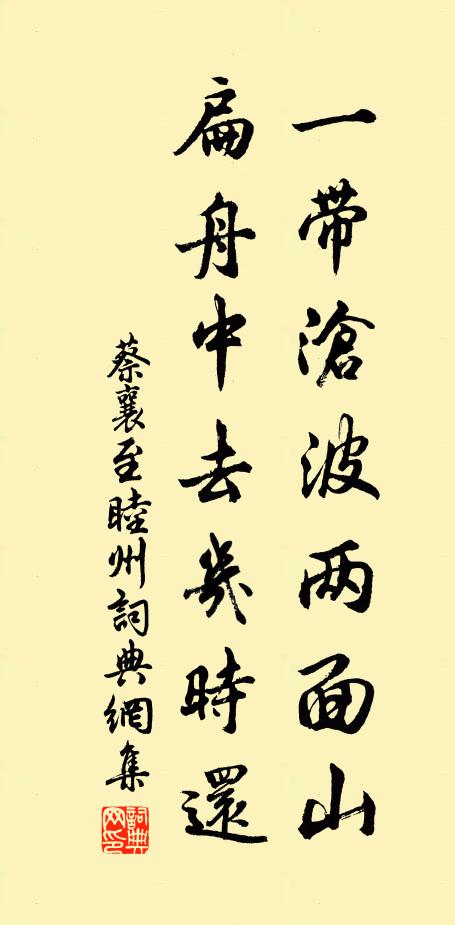 一帶滄波两面山
扁舟中去幾時還
蔡襄至睦州詞典網集
詞典网印